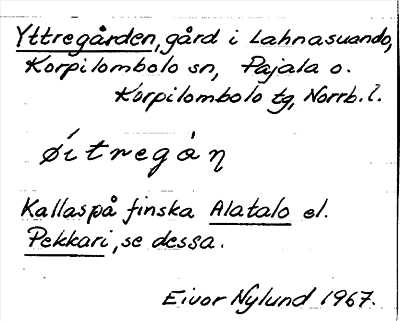 Yttregården, gård i Lahnasuando,
Korpilombolo sn, Pajala o.
Korpilombolo tg, Norrb. l.
øítregàη
Kallas på finska Alatalo el.
Pekkari, se dessa.
Eivor Nylund 1967.